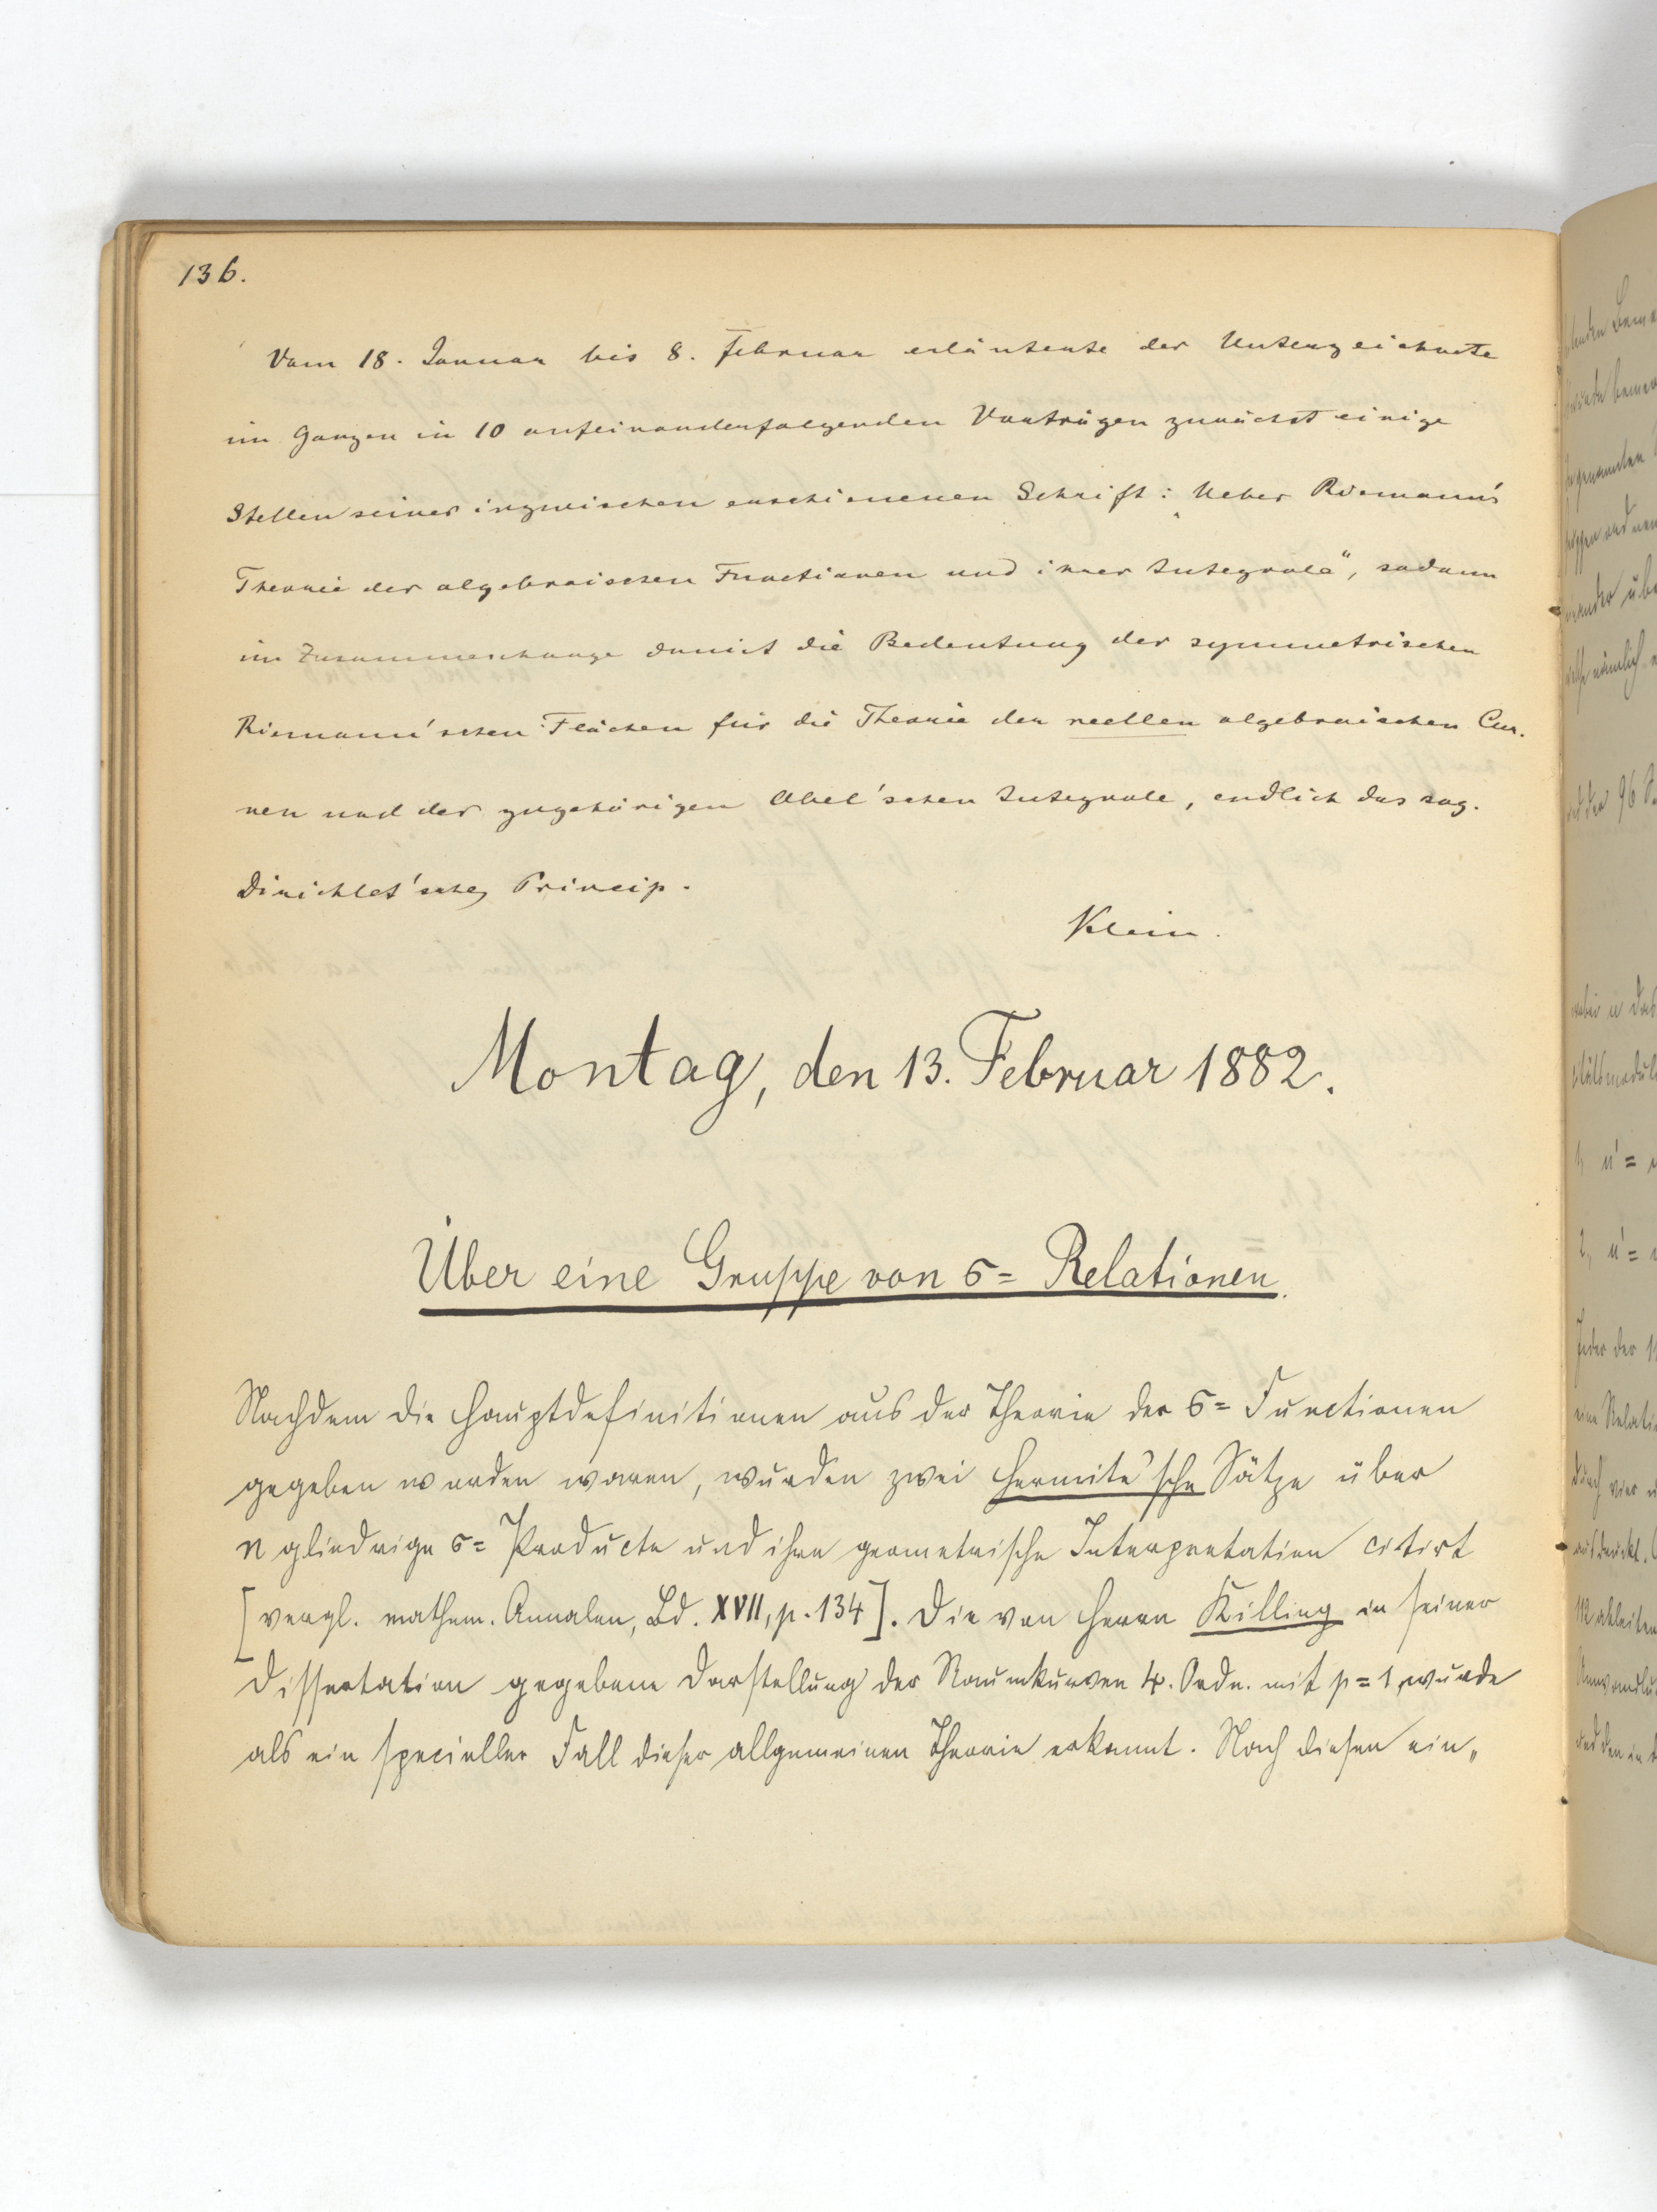 136.
Vom 18. Januar bis 8. Februar erläuterte der Unterzeichnete
im Ganzen in 10 aufeinanderfolgenden Vorträgen zunächst einige
Stellen seiner inzwischen erschienenen Schrift: „Ueber Riemann's
Theorie der algebraischen Functionen und ihrer Integrale“, sodann
im Zusammenhange damit die Bedeutung der symmetrischen
Riemann'schen Flächen für die Theorie der reellen algebraischen Cur-
ven und der zugehörigen Abel'schen Integrale, endlich das sog.
Dirichlet'sche Princip.
Klein.
Montag, den 13. Februar 1882.
Über eine Gruppe von σ= Relationen.
Nachdem die Hauptdefinitionen aus der Theorie der σ= Functionen
gegeben worden waren, wurden zwei Hermite'sche Sätze über
n gliedrige σ= Producte und ihre geometrische Interpretation citirt
[vergl. mathem. Annalen, Bd. XVII, p. 134]. Die von Herrn Killing in seiner
Dissertation gegebene Darstellung der Raumkurven 4. Ordn. mit p = 1, wurde
als ein specieller Fall dieser allgemeinen Theorie erkannt. Nach diesen ein„